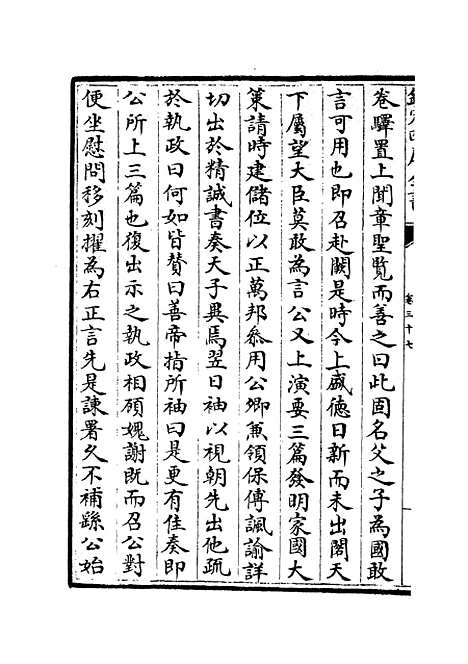 欽定四庫全書
卷三十七
卷驛置上聞章聖覧而善之曰此固名父之子為國敢
言可用也即召赴闕是時今上盛徳日新而未出閤天
下屬望大臣莫敢為言公又上演要三篇發明家國大
策請時建儲位以正萬邦叅用公卿兼領保傅諷諭詳
切出於精誠書奏天子異焉翌日袖以視朝先出他疏
於執政曰何如皆賛曰善帝指所袖曰是更有佳奏即
公所上三篇也復出示之執政相顧媿謝既而召公對
便坐慰問移刻擢為右正言先是諫署久不補繇公始